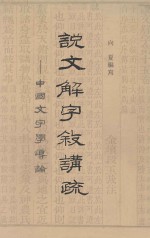 向夏編寫
說文解字敘講疏
——中國文字學導論